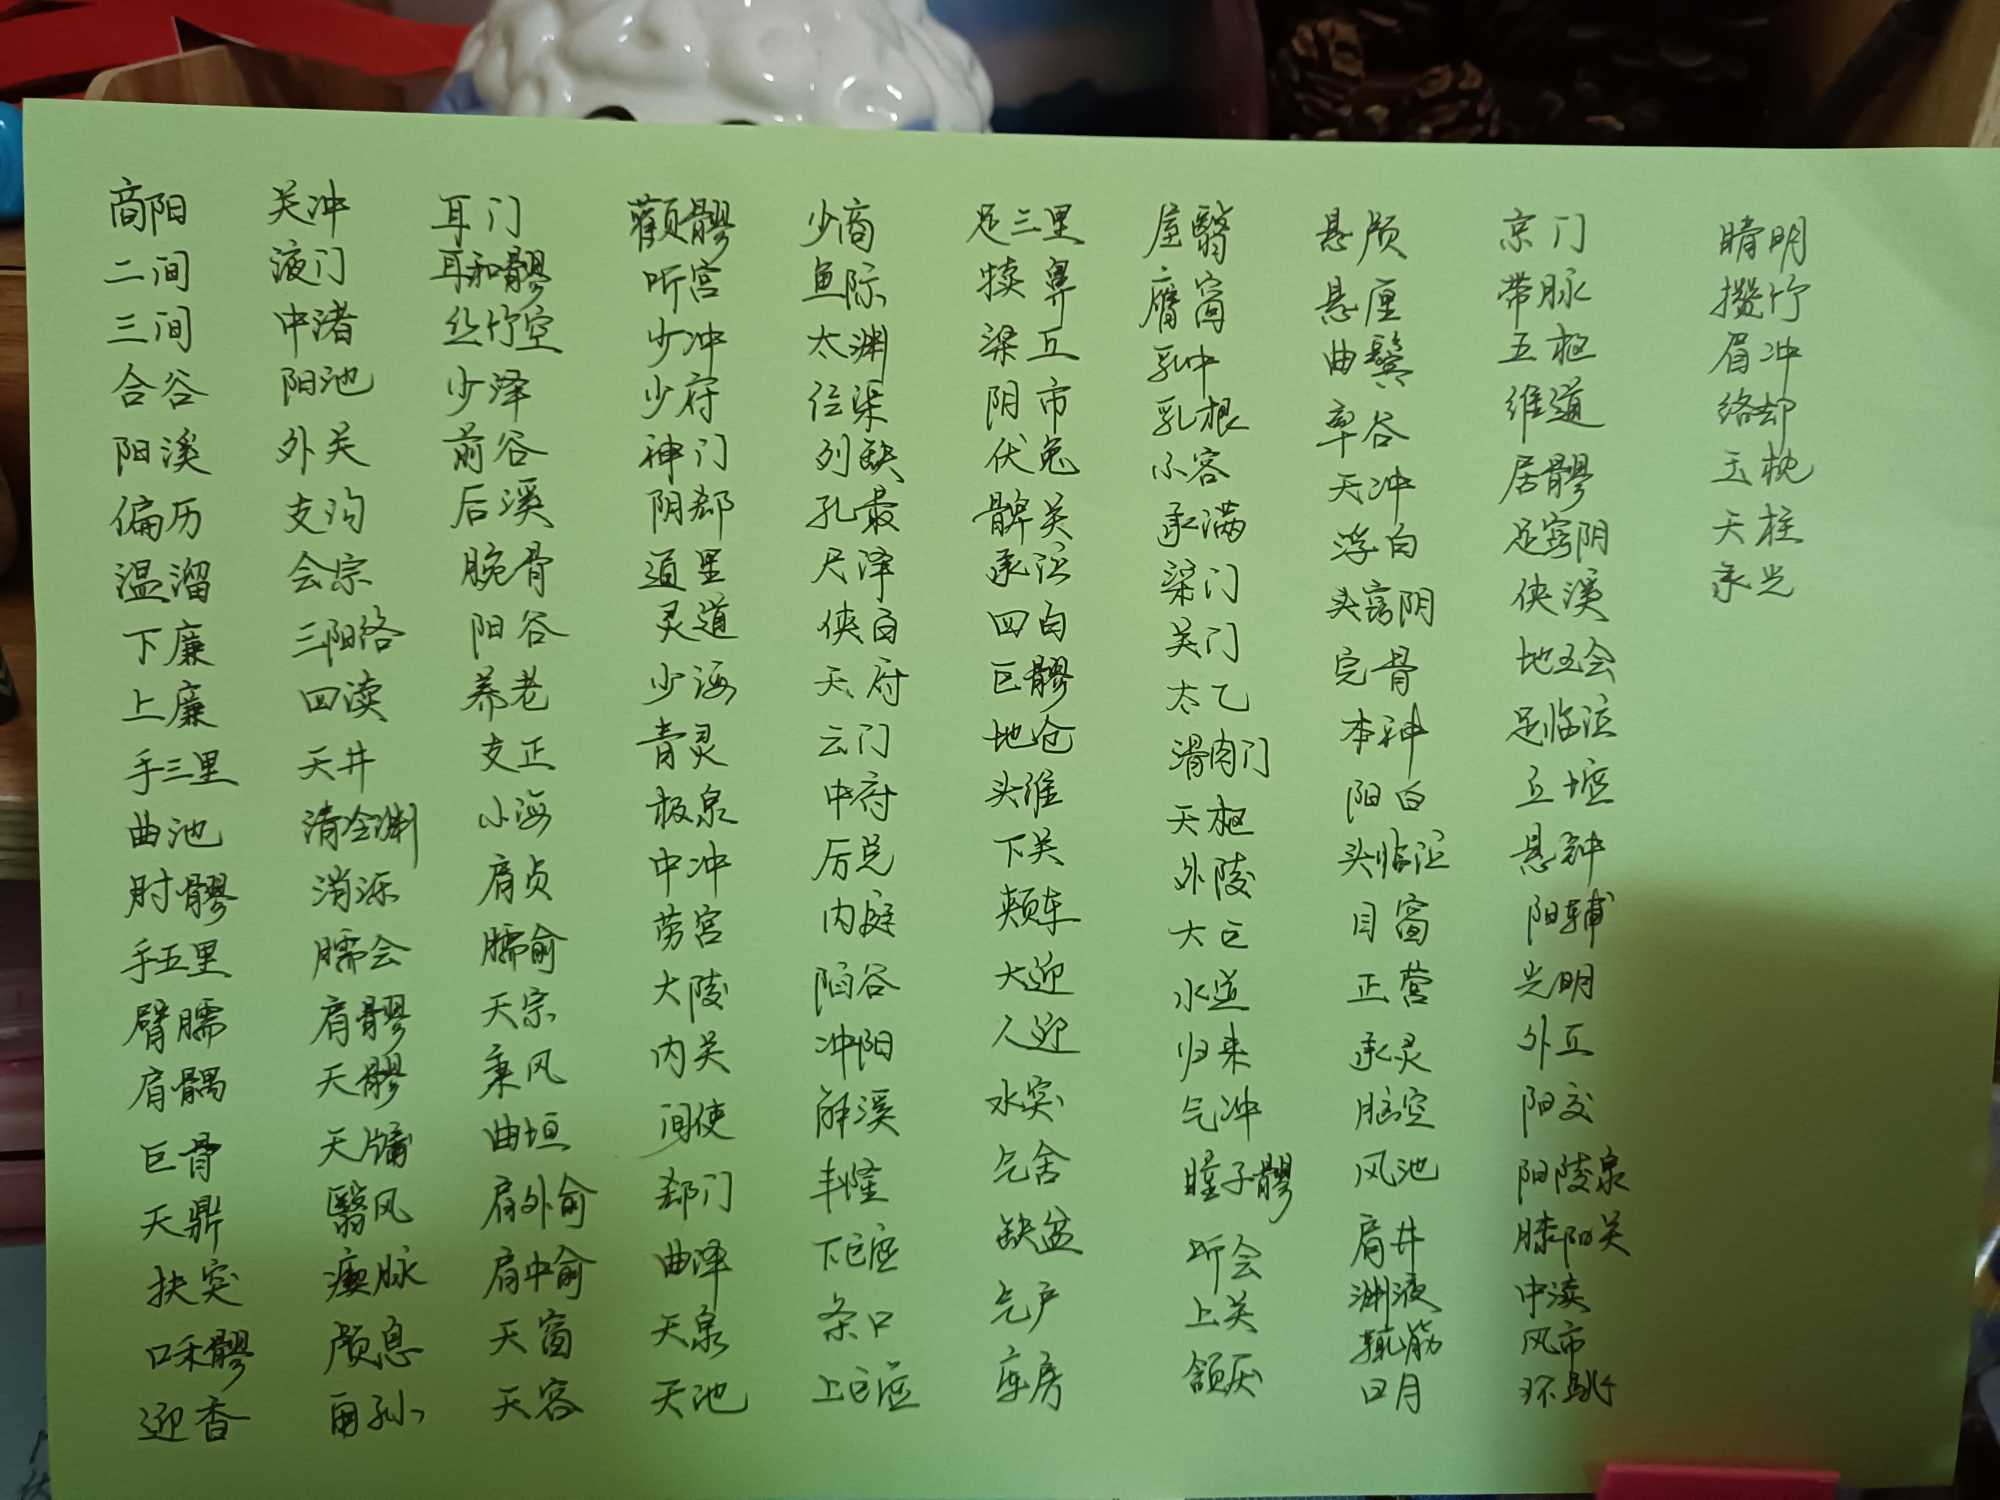 商阳
二间
三间
合谷
阳溪
偏历
温溜
下廉
上廉
手三里
曲池
肘髎
手五里
臂臑
肩髃
巨骨
天鼎
扶突
口禾髎
迎香
关冲
液门
中渚
阳池
外关
支沟
会宗
三阳络
四渎
天井
清冷渊
消泺
臑会
肩髎
天髎
天牖
翳风
瘈脉
颅息
角孙
耳门
耳和髎
丝竹空
少泽
前谷
后溪
腕骨
阳谷
养老
支正
小海
肩贞
臑俞
天宗
秉风
曲垣
肩外俞
肩中俞
天窗
天容
颧髎
听宫
少冲
少府
神门
阴郄
通里
灵道
少海
青灵
极泉
中冲
劳宫
大陵
内关
间使
郄门
曲泽
天泉
天池
少商
鱼际
太渊
经渠
列缺
孔最
尺泽
侠白
天府
云门
中府
厉兑
内庭
陷谷
冲阳
解溪
丰隆
下巨虚
条口
上巨虚
足三里
犊鼻
梁丘
阴市
伏兔
髀关
承泣
四白
巨髎
地仓
头维
下关
颊车
大迎
人迎
水突
气舍
缺盆
气户
库房
屋翳
膺窗
乳中
乳根
不容
承满
梁门
关门
太乙
滑肉门
天枢
外陵
大巨
水道
归来
气冲
瞳子髎
听会
上关
颔厌
悬颅
悬厘
曲鬓
率谷
天冲
浮白
头窍阴
完骨
本神
阳白
头临泣
目窗
正营
承灵
脑空
风池
肩井
渊液
辄筋
日月
京门
带脉
五枢
维道
居髎
足窍阴
侠溪
地五会
足临泣
丘墟
悬钟
阳辅
光明
外丘
阳交
阳陵泉
膝阳关
中渎
风市
环跳
睛明
攒竹
眉冲
络却
玉枕
天柱
承光